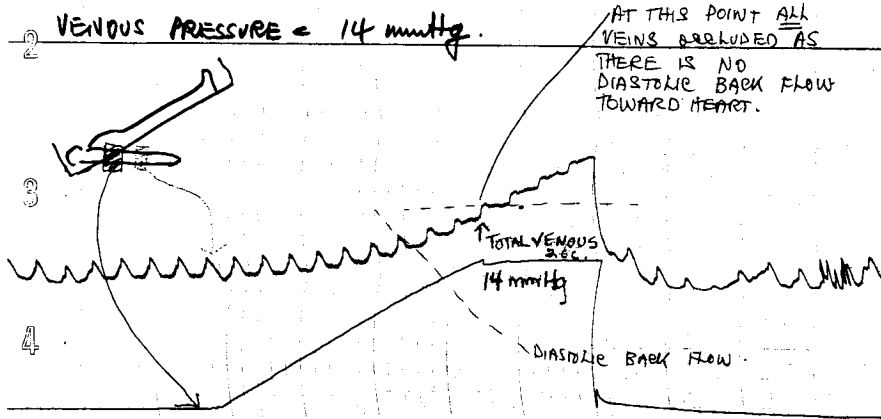 2
VENOUS PRESSURE = 14 mmHg.
AT THIS POINT ALL
VEINS OCCLUDED AS
THERE IS NO
DIASTOLIC BACK FLOW
TOWARD HEART.
3
TOTAL VENOUS
14 mmHg
4
DIASTOLIC BACK FLOW.